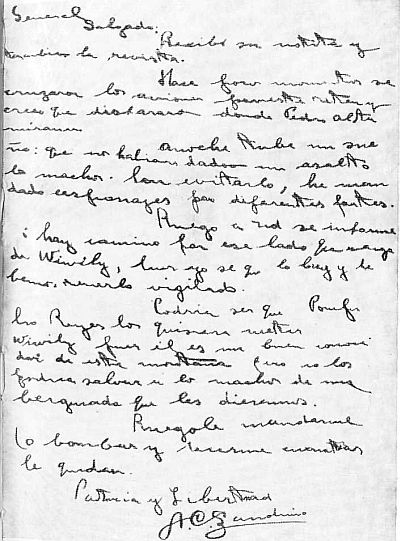 General
Salgado:
Recibí su notita y
tambien la revista.
Hace pocos momentos se
cruzaron los aviones
creo que dispararon donde Pedro Alta
mirano
Anoche tube un sue
ño: que nos habian dado un asalto
lo machos. Para evitarlo, he man
dado espionages por diferentes partes.
Ruego a Ud se informe
si hay camino por ese lado que venga
de Wiwilý, pues yo se que lo hay y de
bemos tenerlo vigilado.
Podria ser que Ponfi
lio Reyes los quisiera meter
Wiwilý pues él es un buen conoci
dor de esta montaña pero no los
podria salvar a lo machos de una
berguiada que les dieramos.
Ruegole mandarme
lo bombas y decirme cuantas
le quedan.
Patria y Libertad
A. C. Sandino